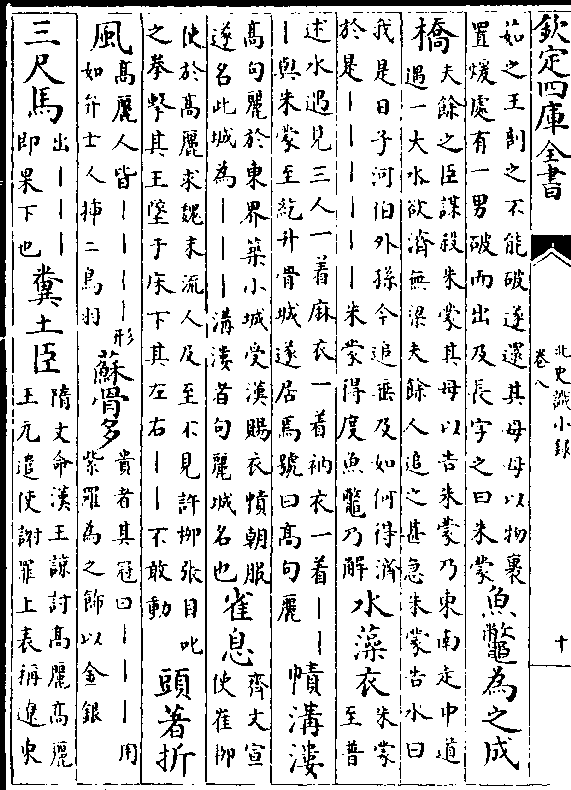 欽定四庫全書
北史識小録
卷八
十
茹之王剖之不能破遂還其母母以物裹
置煖處有一男破而出及長字之曰朱蒙
魚鼈為之成
橋
夫餘之臣謀殺朱蒙其母以告朱蒙乃東南走中道
遇一大水欲濟無梁夫餘人追之甚急朱蒙告水曰
我是日子河伯外孫今追垂及如何得濟
於是丨丨丨丨丨朱蒙得度魚鼈乃解
水藻衣
朱蒙
至普
述水遇見三人一着麻衣一着衲衣一着丨丨
丨與朱蒙至紇升骨城遂居焉號曰高句麗
幘溝漊
高句麗於東界築小城受漢賜衣幘朝服
遂名此城為丨丨丨溝漊者句麗城名也
雀息
齊文宣
使崔柳
使於高麗求魏末流人及至不見許柳張目叱
之拳擊其王墜于床下其左右丨丨不敢動
頭著折
風
高麗人皆丨丨丨丨形
如弁士人揷二鳥羽
蘇骨多
貴者其冠曰丨丨丨用
紫羅為之飾以金銀
三尺馬
出丨丨丨
即果下也
糞土臣
隋文命漢王諒討高麗高麗
王元遣使謝罪上表稱遼東